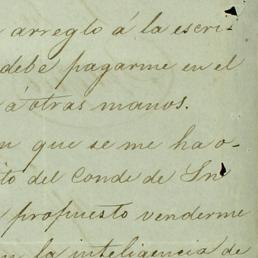 arreglo á la escri-
debe pagarme en el
á otras manos.
que se me ha o-
to del Conde de Sn
propuesto venderme
la inteligencia de